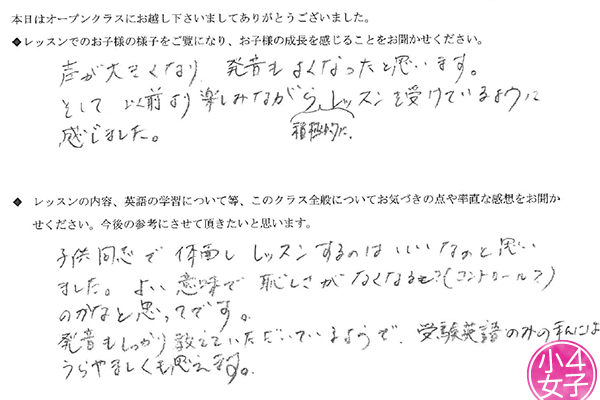 本日はオープンクラスにお越し下さいましてありがとうございました。
◆レッスンでのお子様の様子をご覧になり、お子様の成長を感じることをお聞かせください。
声が大きくなり、発音もよくなったと思います。
そして以前より楽しみながら、レッスンを受けているように
積極的に
感じました。
◆ レッスンの内容、英語の学習について等、このクラス全般についてお気づきの点や率直な感想をお聞か
せください。今後の参考にさせて頂きたいと思います。
子供同志で体面しレッスンするのはいいなと思い
ました。よい意味で恥しさがなくなる?(コントロール?)
のかなと思ってです。
発音もしっかり教えていただいているようで、受験英語のみの
うらやましくも思えます。
小4
女子